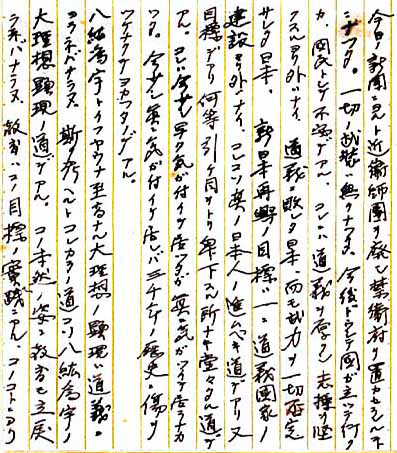 今日ノ新聞ニヨルト近衛師團ヲ廃シ禁衛府ヲ置カセラルルト
ナツタ。一切ノ武装ハ無クナツタ。今後ドウシテ國ガ立ツテ行ク
カ、國民トシテ不安デアル。コレニハ道義ヲ存シ志操ヲ堅
フスルヨリ外ハナイ。道義ニ敗レタ日本、而モ武力ヲ一切否定
サレタ日本、新日本再興ノ目標ハ一ニ道義國家ノ
建設ヨリ外ハナイ、コレコソ真ノ日本人ノ進ムベキ道デアリ又
目標デアリ何等引ケ目ヲトリ卑下スル所ナキ堂々タル道デ
アル。コレニ今少シ早ク気ガ付イテ居ツタガ真ニ気ガツイテ居ラナカ
ツタ。今少シ氣ニ気ガ付イテ居レバ三千年ノ歴史ニ傷ヲ
ツケナクテヨカツタノデアル。
八紘為宇トイフヤウナ至高ナル大理想ノ顕現ハ道義ニ
ヨラネバナラヌ、斯ク考ヘルトコレカラノ道コソ八紘為宇ノ
大理想顕現ノ道デアル。コノ本然ノ姿ニ教育モ立戻
ラネバナラヌ、教育ハコノ目標ノ實践ニアル、コノコトニヨリ